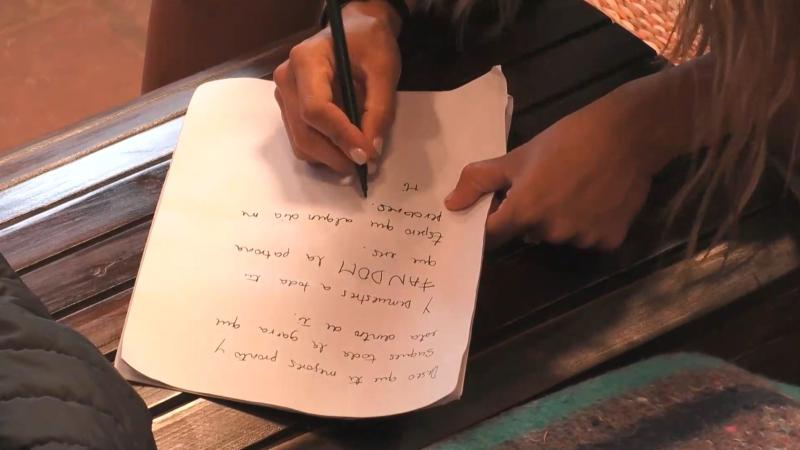 Deseo que ti mejores pronto y
Saques toda la garra que
esta dentro de Ti.
Y Demuestres a todo tu
FANDOM la patrona
que eres.
Espero que algun dia me
perdones.
Ti